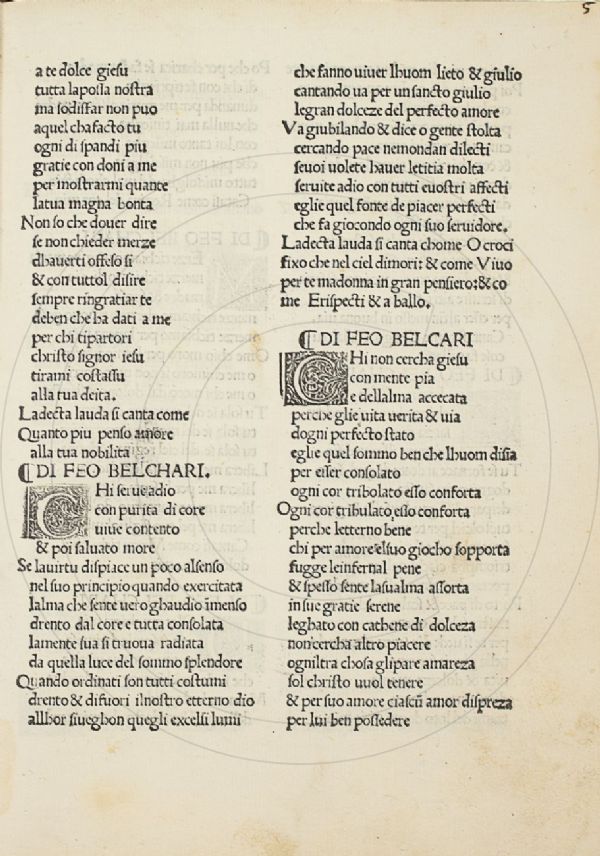 5
a te dolce giesu
tutta la possa nostra
ma sodisfar non puo
aquel cha facto tu
ogni di spandi piu
gratie con doni a me
per mostrarmi quante
la tua magna bonta
Non so che douer dire
se non chieder merze
dhauerti offeso si
& con tuttol disire
sempre ringratiar te
deben che ha dati a me
per chi tipartori
christo signor iesu
tirami costassu
alla tua deita.
Ladecta lauda si canta come
Quanto piu penso amore
alla tua nobilita
¶ DI FEO BELCHARI.
CHi serue adio
con purita di core
uiue contento
& poi saluato more
Se lauirtu dispiace un poco alsenso
nel suo principio quando exercitata
lalma che sente uero ghaudio īmenso
drento dal core e tutta consolata
lamente sua si truoua radiata
da quella luce del sommo splendore
Quando ordinati son tutti costumi
drento & difuori ilnostro etterno dio
allhor siueghon quegli excelsi lumi
che fanno uiuer lhuom lieto & giulio
cantando ua per un sancto giulio
legran dolceze del perfecto amore
Va giubilando & dice o gente stolta
cercando pace nemondan dilecti
seuoi uolete hauer letitia molta
seruite adio con tutti euostri affecti
eglie quel fonte de piacer perfecti
che fa giocondo ogni suo seruidore.
Ladecta lauda si canta chome O croci
fixo che nel ciel dimori: & come Viuo
per te madonna in gran pensiero: & co
me Erispecti & a ballo.
¶ DI FEO BELCARI
CHi non cercha giesu
con mente pia
e dellalma accecata
perche glie uita uerita & uia
dogni perfecto stato
eglie quel sommo ben che lhuom disia
per esser consolato
ogni cor tribolato esso conforta
Ogni cor tribulato esso conforta
perche letterno bene
chi per amore elsuo giocho sopporta
fugge leinfernal pene
& spesso sente lasualma assorta
in sue gratie serene
leghato con cathene di dolceza
non cercha altro piacere
ogniltra chosa glipare amareza
sol christo uuol tenere
& per suo amore ciascū amor dispreza
per lui ben possedere